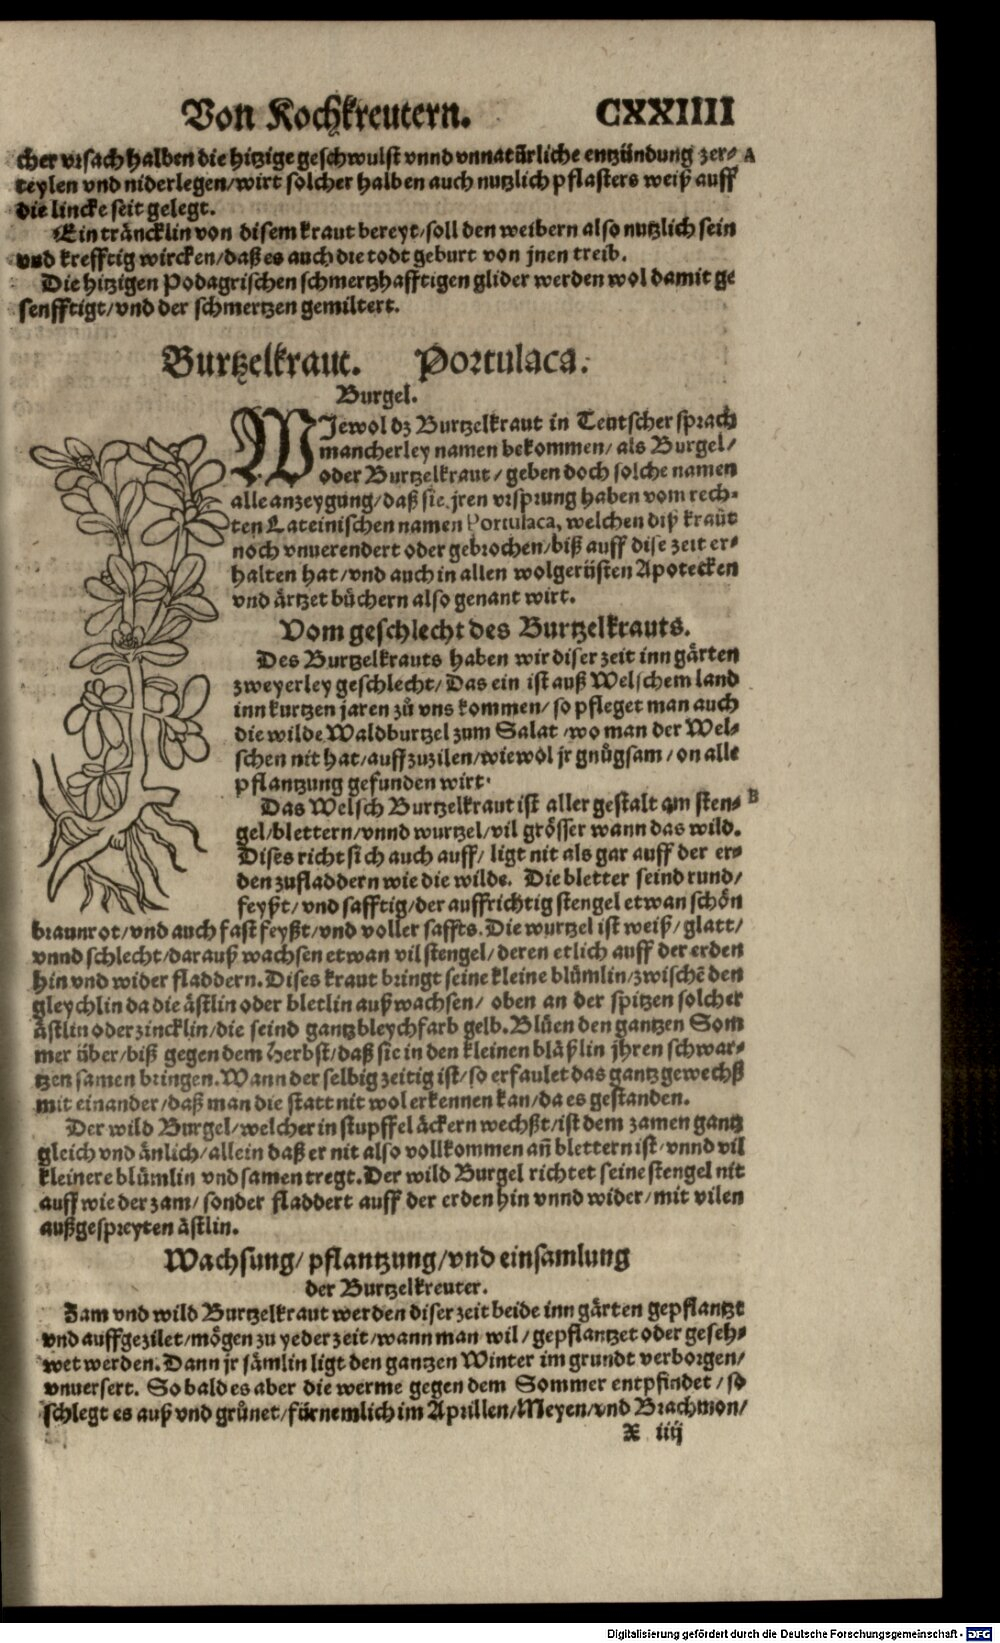 Von Kochkreutern. CXXIIII
cher vrsach halben die hitzige geschwulst vnnd vnnatürliche entzündung zer- A
teylen vnd niderlegen/wirt solcher halben auch nutzlich pflasters weiß auff
die lincke seit gelegt.
Ein träncklin von disem kraut bereyt/soll den weibern also nutzlich sein
vnd krefftig wircken/daß es auch die todt geburt von jnen treib.
Die hitzigen Podagrischen schmertzhafftigen glider werden wol damit ge
senfftigt/vnd der schmertzen gemiltert.
Burtzelkraut. Portulaca.
Burgel.
WJewol dz Burtzelkraut in Teutscher sprach
mancherley namen bekommen/als Burgel/
oder Burtzelkraut/geben doch solche namen
alle anzeygung/daß sie jren vrsprung haben vom rech-
ten Lateinischen namen Portulaca, welchen diß kraut
noch vnuerendert oder gebrochen/biß auff dise zeit er-
halten hat/vnd auch in allen wolgerüsten Apotecken
vnd ärtzet büchern also genant wirt.
Vom geschlecht des Burtzelkrauts.
Des Burtzelkrauts haben wir diser zeit inn gärten
zweyerley geschlecht/Das ein ist auß Welschem land
inn kurtzen jaren zů vns kommen/so pfleget man auch
die wilde Waldburtzel zum Salat/wo man der Wel-
schen nit hat/auffzuzilen/wiewol jr gnůgsam/on alle
pflantzung gefunden wirt.
Das Welsch Burtzelkraut ist aller gestalt am sten- B
gel/blettern/vnnd wurtzel/vil grösser wann das wild.
Dises richt sich auch auff/ligt nit als gar auff der er-
den zufladdern wie die wilde. Die bletter seind rund/
feyßt/vnd safftig/der auffrichtig stengel etwan schön
braunrot/vnd auch fast feyßt/vnd voller saffts. Die wurtzel ist weiß/glatt/
vnnd schlecht/darauß wachsen etwan vil stengel/deren etlich auff der erden
hin vnd wider fladdern. Dises kraut bringt seine kleine blümlin/zwischē den
gleychlin da die ästlin oder bletlin außwachsen/oben an der spitzen solcher
ästlin oder zincklin/die seind gantz bleychfarb gelb. Blüen den gantzen Som
mer über/biß gegen dem Herbst/daß sie in den kleinen bläßlin jhren schwar-
tzen samen bringen. Wann der selbig zeitig ist/so erfaulet das gantz gewechß
mit einander/daß man die statt nit wol erkennen kan/da es gestanden.
Der wild Burgel/welcher in stupffel äckern wechßt/ist dem zamen gantz
gleich vnd änlich/allein daß er nit also vollkommen an̄ blettern ist/vnnd vil
kleinere blümlin vnd samen tregt. Der wild Burgel richtet seine stengel nit
auff wie der zam/sonder fladdert auff der erden hin vnnd wider/mit vilen
außgespreyten ästlin.
Wachsung/pflantzung/vnd einsamlung
der Burtzelkreuter.
Zam vnd wild Burtzelkraut werden diser zeit beide inn gärten gepflantzt
vnd auffgezilet/mögen zu yeder zeit/wann man wil/gepflantzet oder geseh-
wet werden. Dann jr sämlin ligt den gantzen Winter im grundt verborgen/
vnuersert. So bald es aber die werme gegen dem Sommer entpfindet/so
schlegt es auß vnd grünet/fürnemlich im Aprillen/Meyen/vnd Brachmon/
X iiij
Digitalisierung gefördert durch die Deutsche Forschungsgemeinschaft - DFG